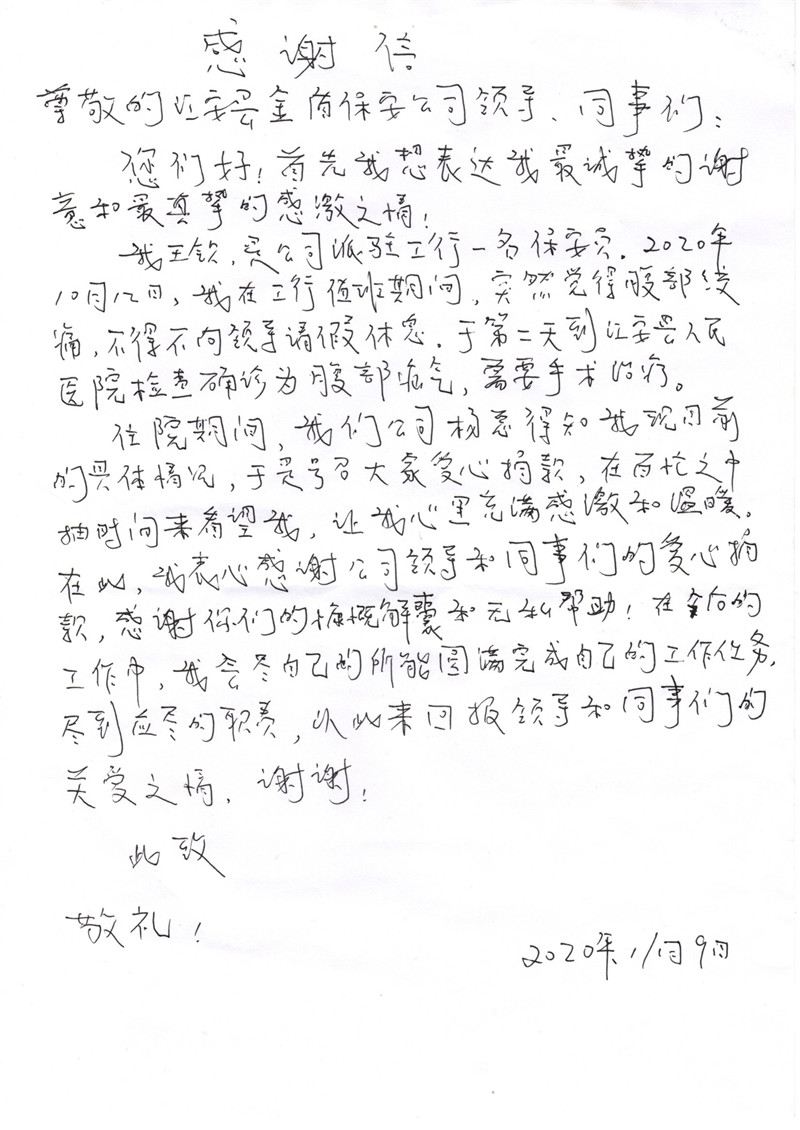 感谢信
尊敬的江安县金盾保安公司领导、同事们：
您们好！首先我想表达我最诚挚的谢
意和最真挚的感激之情！
我王钦，是公司派驻工行一名保安员．2020年
10月12日，我在工行值班期间，突然觉得腹部绞
痛，不得不向领导请假休息．于第二天到江安县人民
医院检查确诊为腹部疝气，需要手术治疗。
住院期间，我们公司杨总得知我现目前
的具体情况，于是号召大家爱心捐款，在百忙之中
抽时间来看望我，让我心里充满感激和温暖。
在此，我衷心感谢公司领导和同事们的爱心捐
款，感谢你们的慷慨解囊和无私帮助！在今后的
工作中，我会尽自己的所能圆满完成自己的工作任务，
尽到应尽的职责，以此来回报领导和同事们的
关爱之情．谢谢！
此致
敬礼！
2020年11月9日